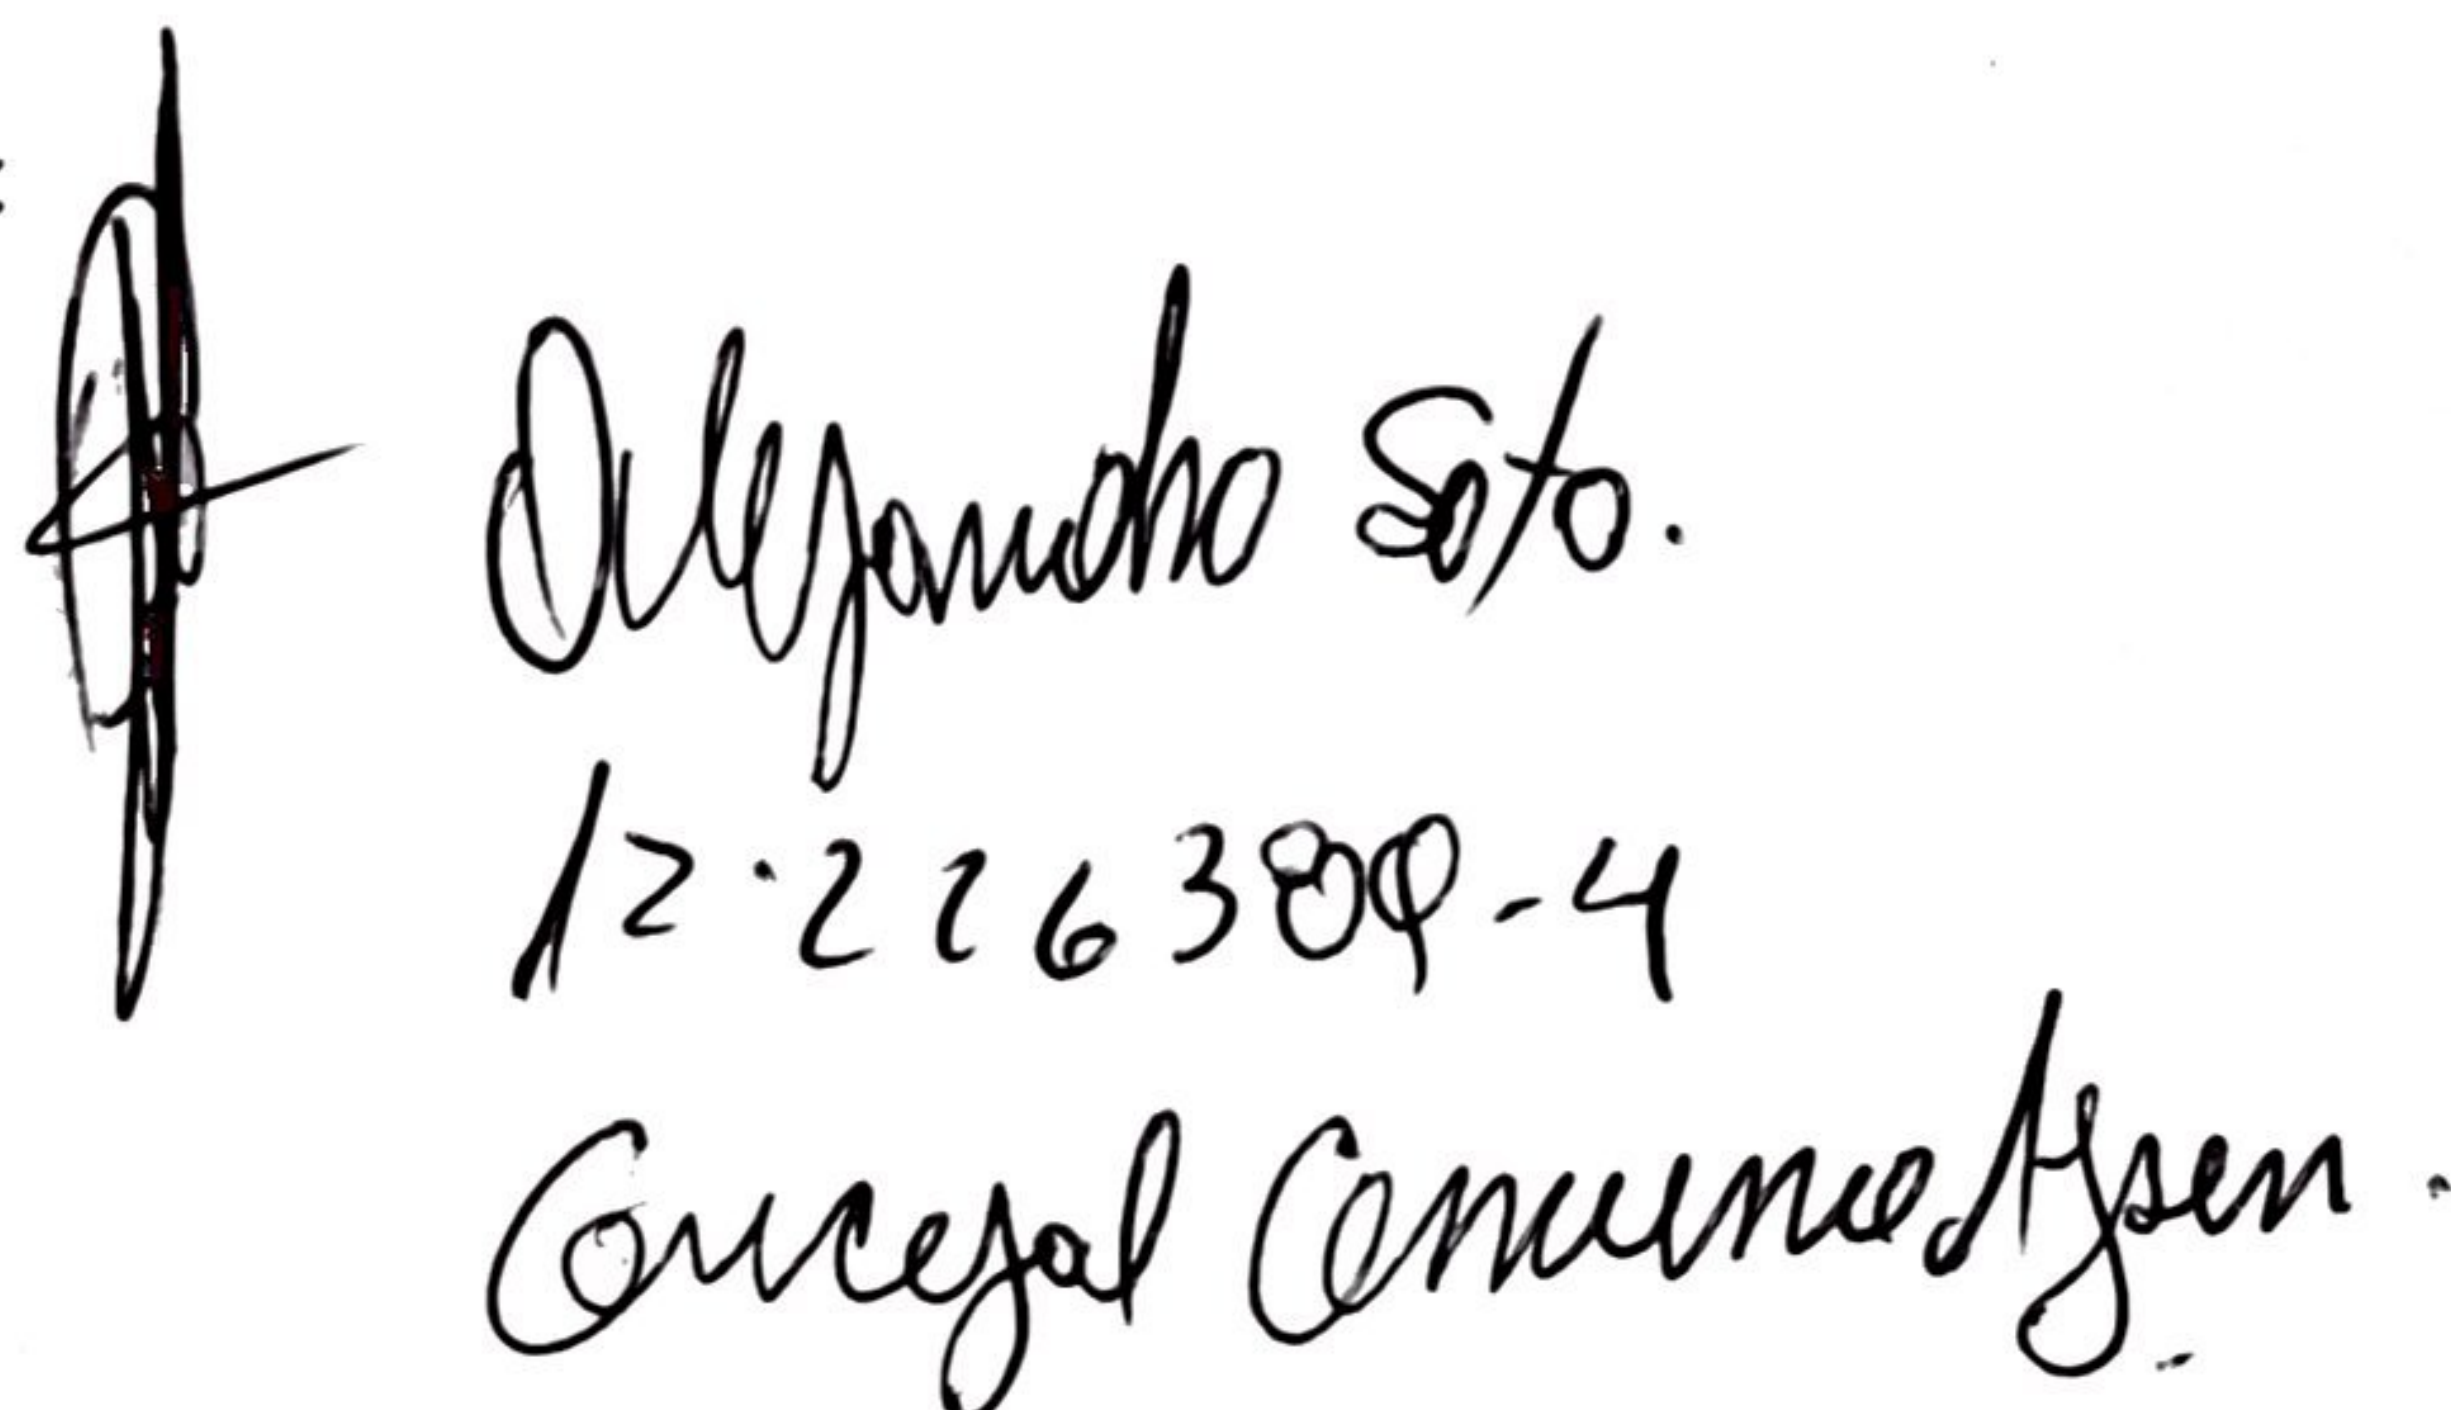 Alejandro Soto.
12.226389-4
Concejal Comuna Aysen.